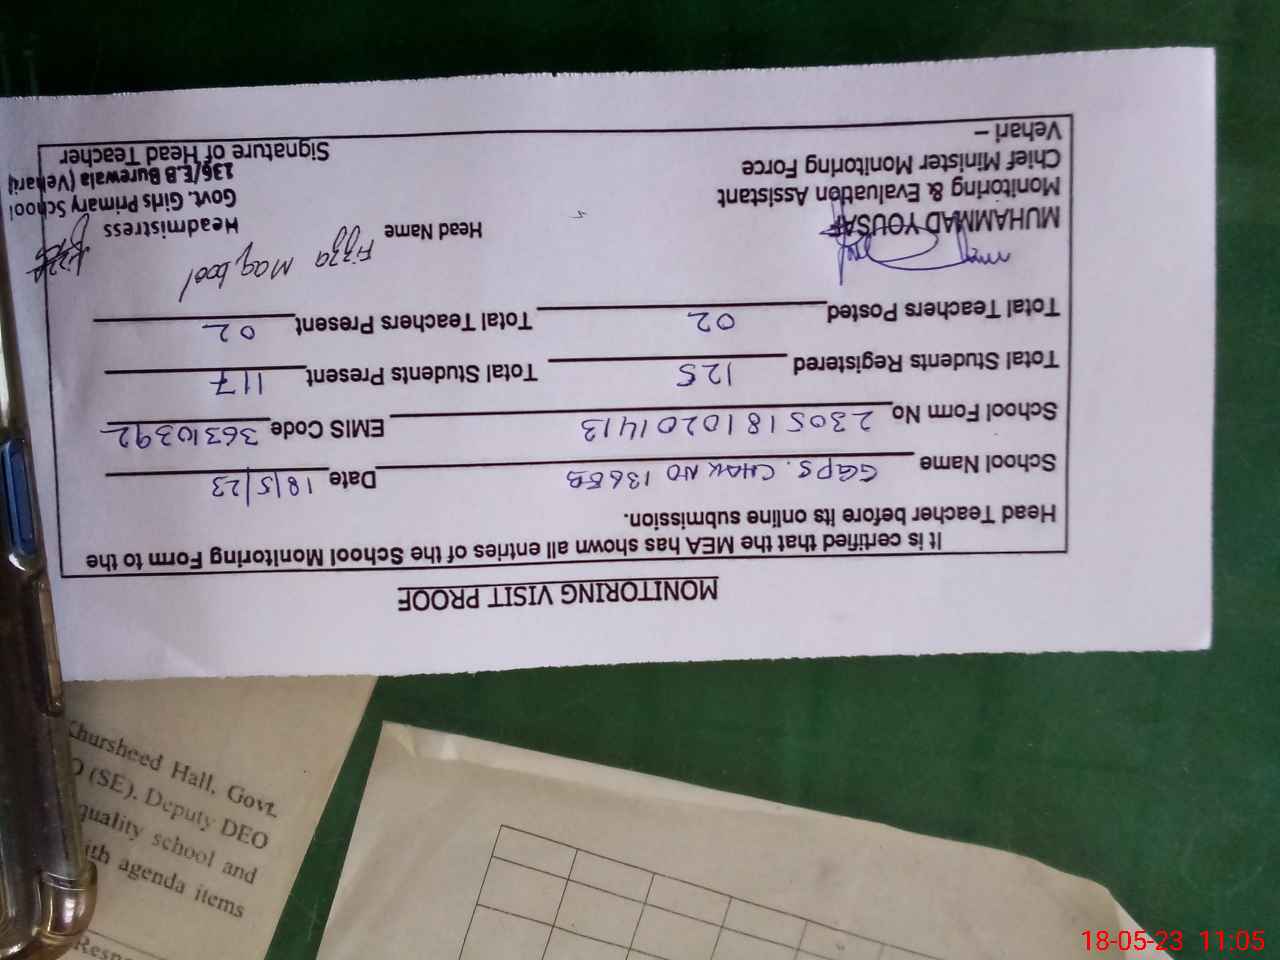 MONITORING VISIT PROOF
It is certified that the MEA has shown all entries of the School Monitoring Form to the
Head Teacher before its online submission.
School Name GGPS. CHAK NO 136EB Date 18/5/23
School Form No. 23051810201413 EMIS Code 36310392
Total Students Registered 125 Total Students Present 117
Total Teachers Posted 02 Total Teachers Present 02
MUHAMMAD YOUSAF
Monitoring & Evaluation Assistant
Chief Minister Monitoring Force
Vehari –
Head Name Fizza Maqbool
Headmistress
Govt. Girls Primary School
136/E.B Burewala (Vehari)
Signature of Head Teacher
Khursheed Hall, Govt.
(SE). Deputy DEO
quality school and
agenda items
18-05-23 11:05